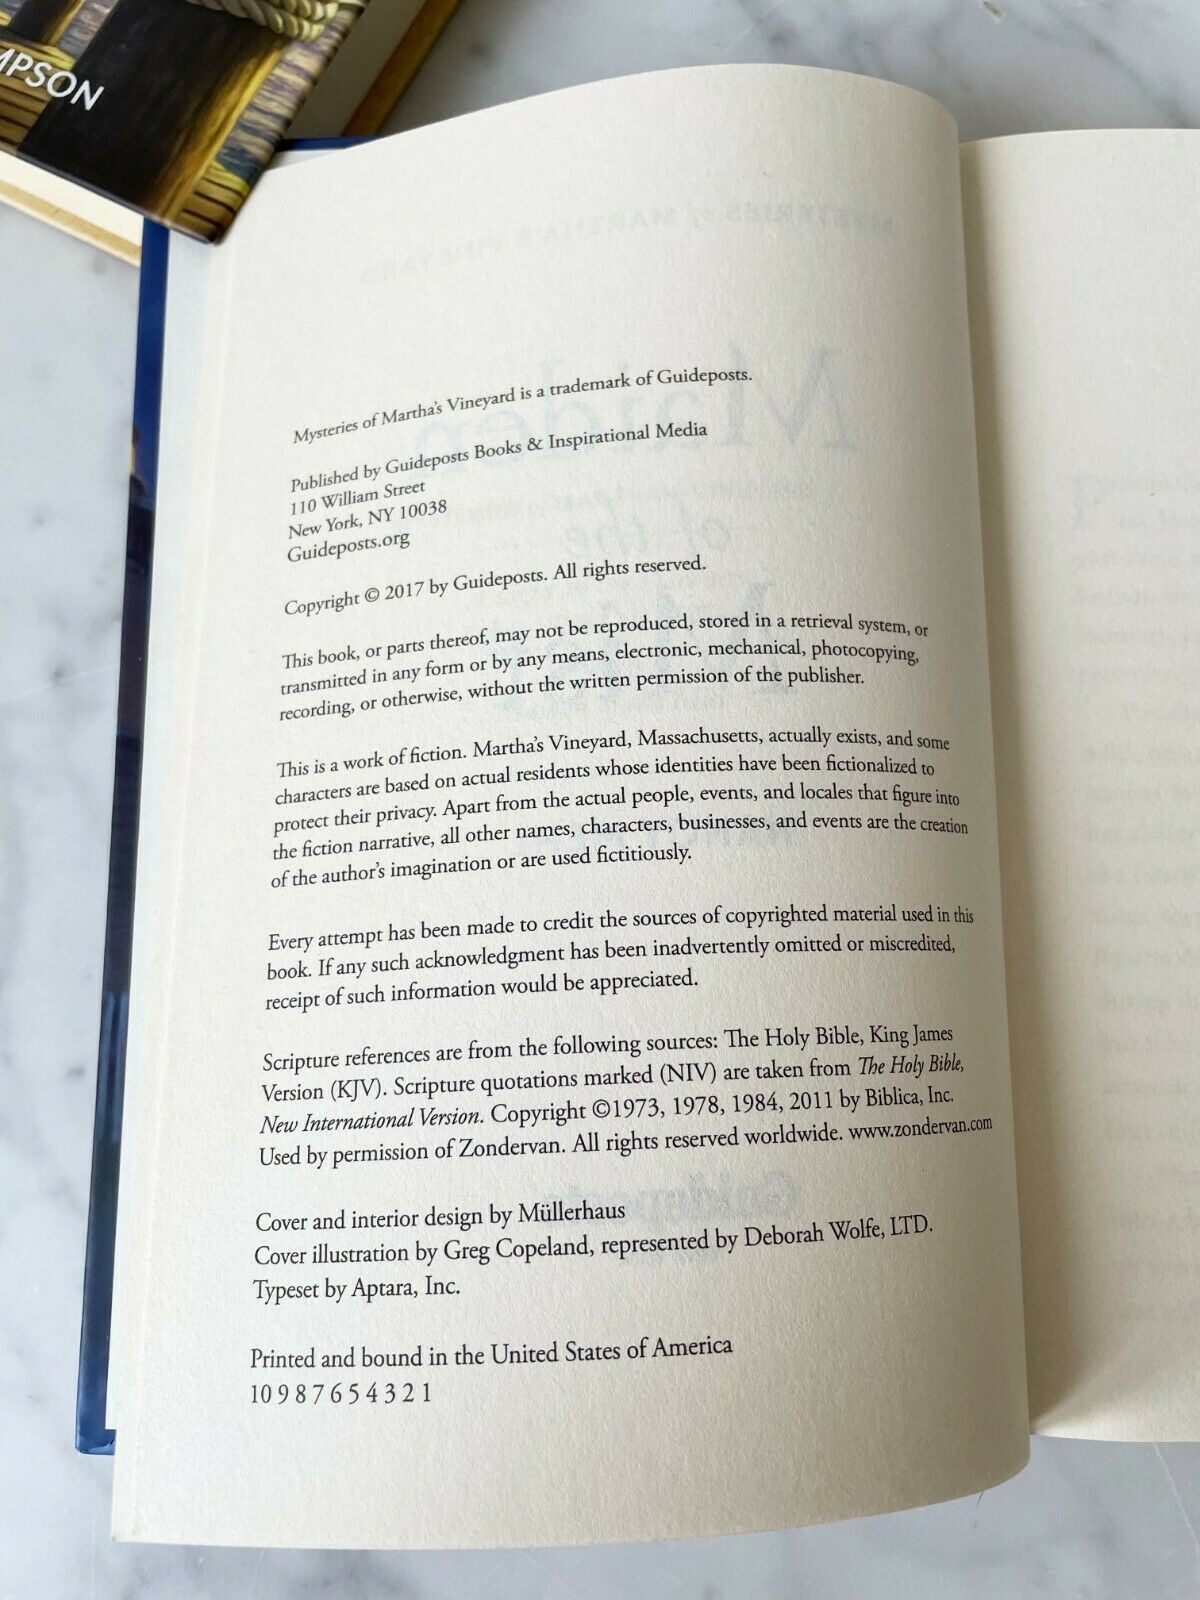 MPSON
Mysteries of Martha's Vineyard is a trademark of Guideposts.
Published by Guideposts Books & Inspirational Media
110 William Street
New York, NY 10038
Guideposts.org
Copyright © 2017 by Guideposts. All rights reserved.
This book, or parts thereof, may not be reproduced, stored in a retrieval system, or
transmitted in any form or by any means, electronic, mechanical, photocopying,
recording, or otherwise, without the written permission of the publisher.
This is a work of fiction. Martha's Vineyard, Massachusetts, actually exists, and some
characters are based on actual residents whose identities have been fictionalized to
protect their privacy. Apart from the actual people, events, and locales that figure into
the fiction narrative, all other names, characters, businesses, and events are the creation
of the author's imagination or are used fictitiously.
Every attempt has been made to credit the sources of copyrighted material used in this
book. If any such acknowledgment has been inadvertently omitted or miscredited,
receipt of such information would be appreciated.
Scripture references are from the following sources: The Holy Bible, King James
Version (KJV). Scripture quotations marked (NIV) are taken from The Holy Bible,
New International Version. Copyright ©1973, 1978, 1984, 2011 by Biblica, Inc.
Used by permission of Zondervan. All rights reserved worldwide. www.zondervan.com
Cover and interior design by Müllerhaus
Cover illustration by Greg Copeland, represented by Deborah Wolfe, LTD.
Typeset by Aptara, Inc.
Printed and bound in the United States of America
10 9 8 7 6 5 4 3 2 1